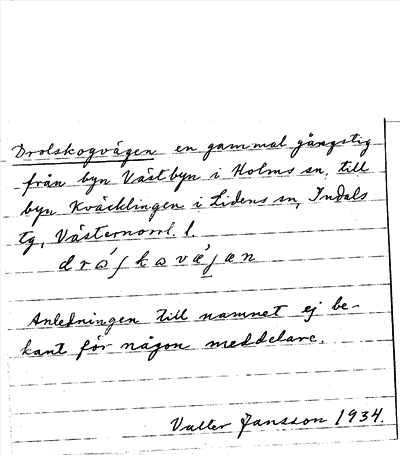 Drolskogvägen en gammal gångstig
från byn Västbyn i Holms sn, till
byn Kväcklingen i Lidens sn, Indals
tg, Västernorrl. l.
Anledningen till namnet ej be-
kant för någon meddelare.
Valter Jansson 1934.